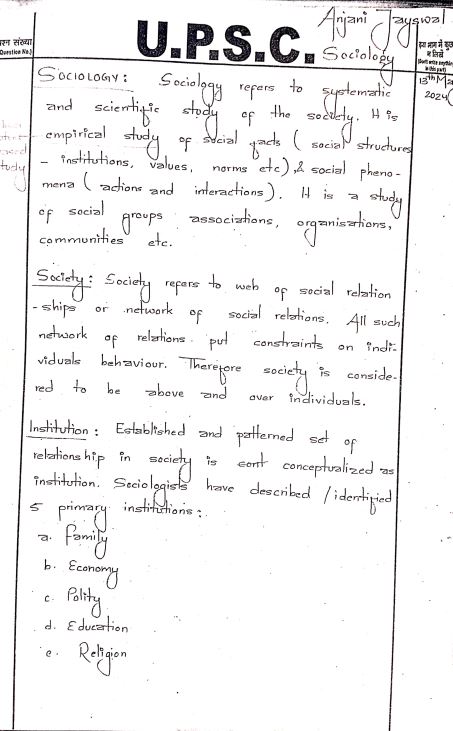 Anjani Jayswal
U.P.S.C.
Sociology
प्रश्न संख्या
(Question No.)
13th Ma
2024
SOCIOLOGY : Sociology refers to systematic
and scientific study of the society. It is
empirical study of social facts ( social structures
- institutions, values, norms etc), & social pheno-
mena ( actions and interactions). It is a study
of social groups associations, organisations,
communities etc.
Society : Society refers to web of social relation
- ships or network of social relations. All such
network of relations put constraints on indi-
viduals behaviour. Therefore society is conside-
red to be above and over individuals.
Institution : Established and patterned set of
relationship in society is conceptualized as
institution. Sociologists have described / identified
5 primary institutions :
a. Family
b. Economy
c. Polity
d. Education
e. Religion